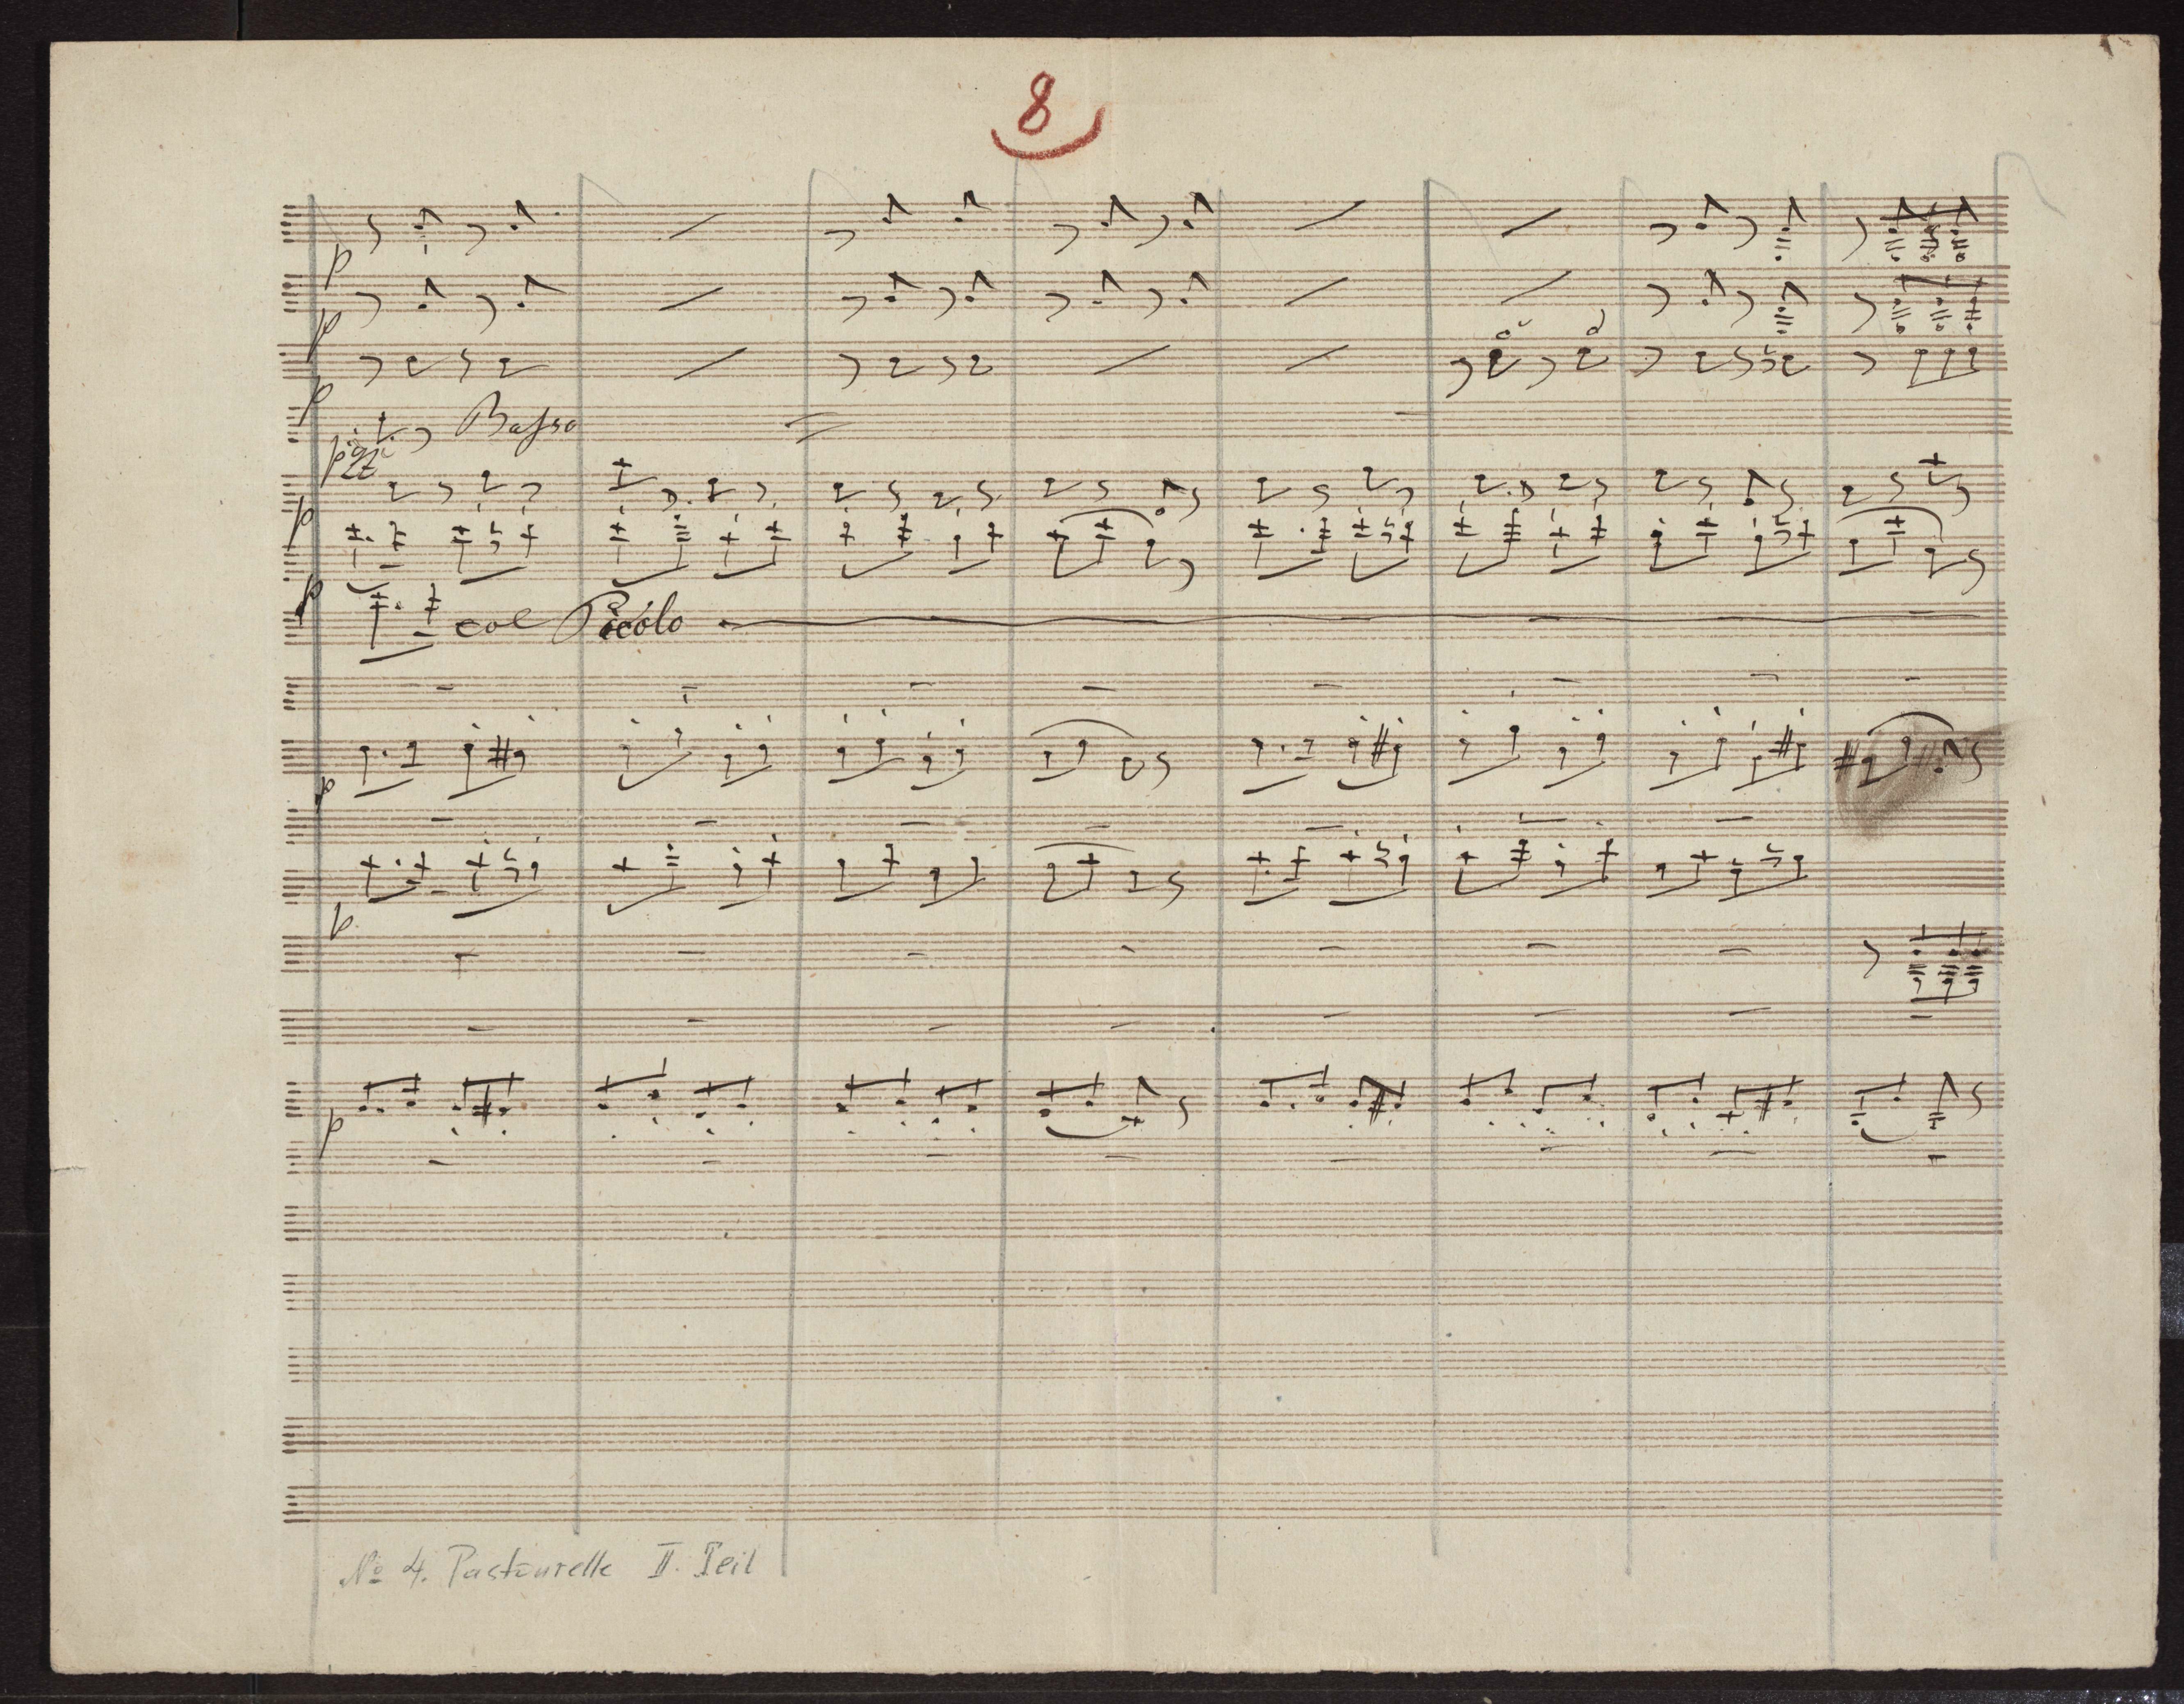 8
p
p
p
Basso
pizz
p
p
col Picolo
p
p
p
No 4. Pastourelle II. Teil